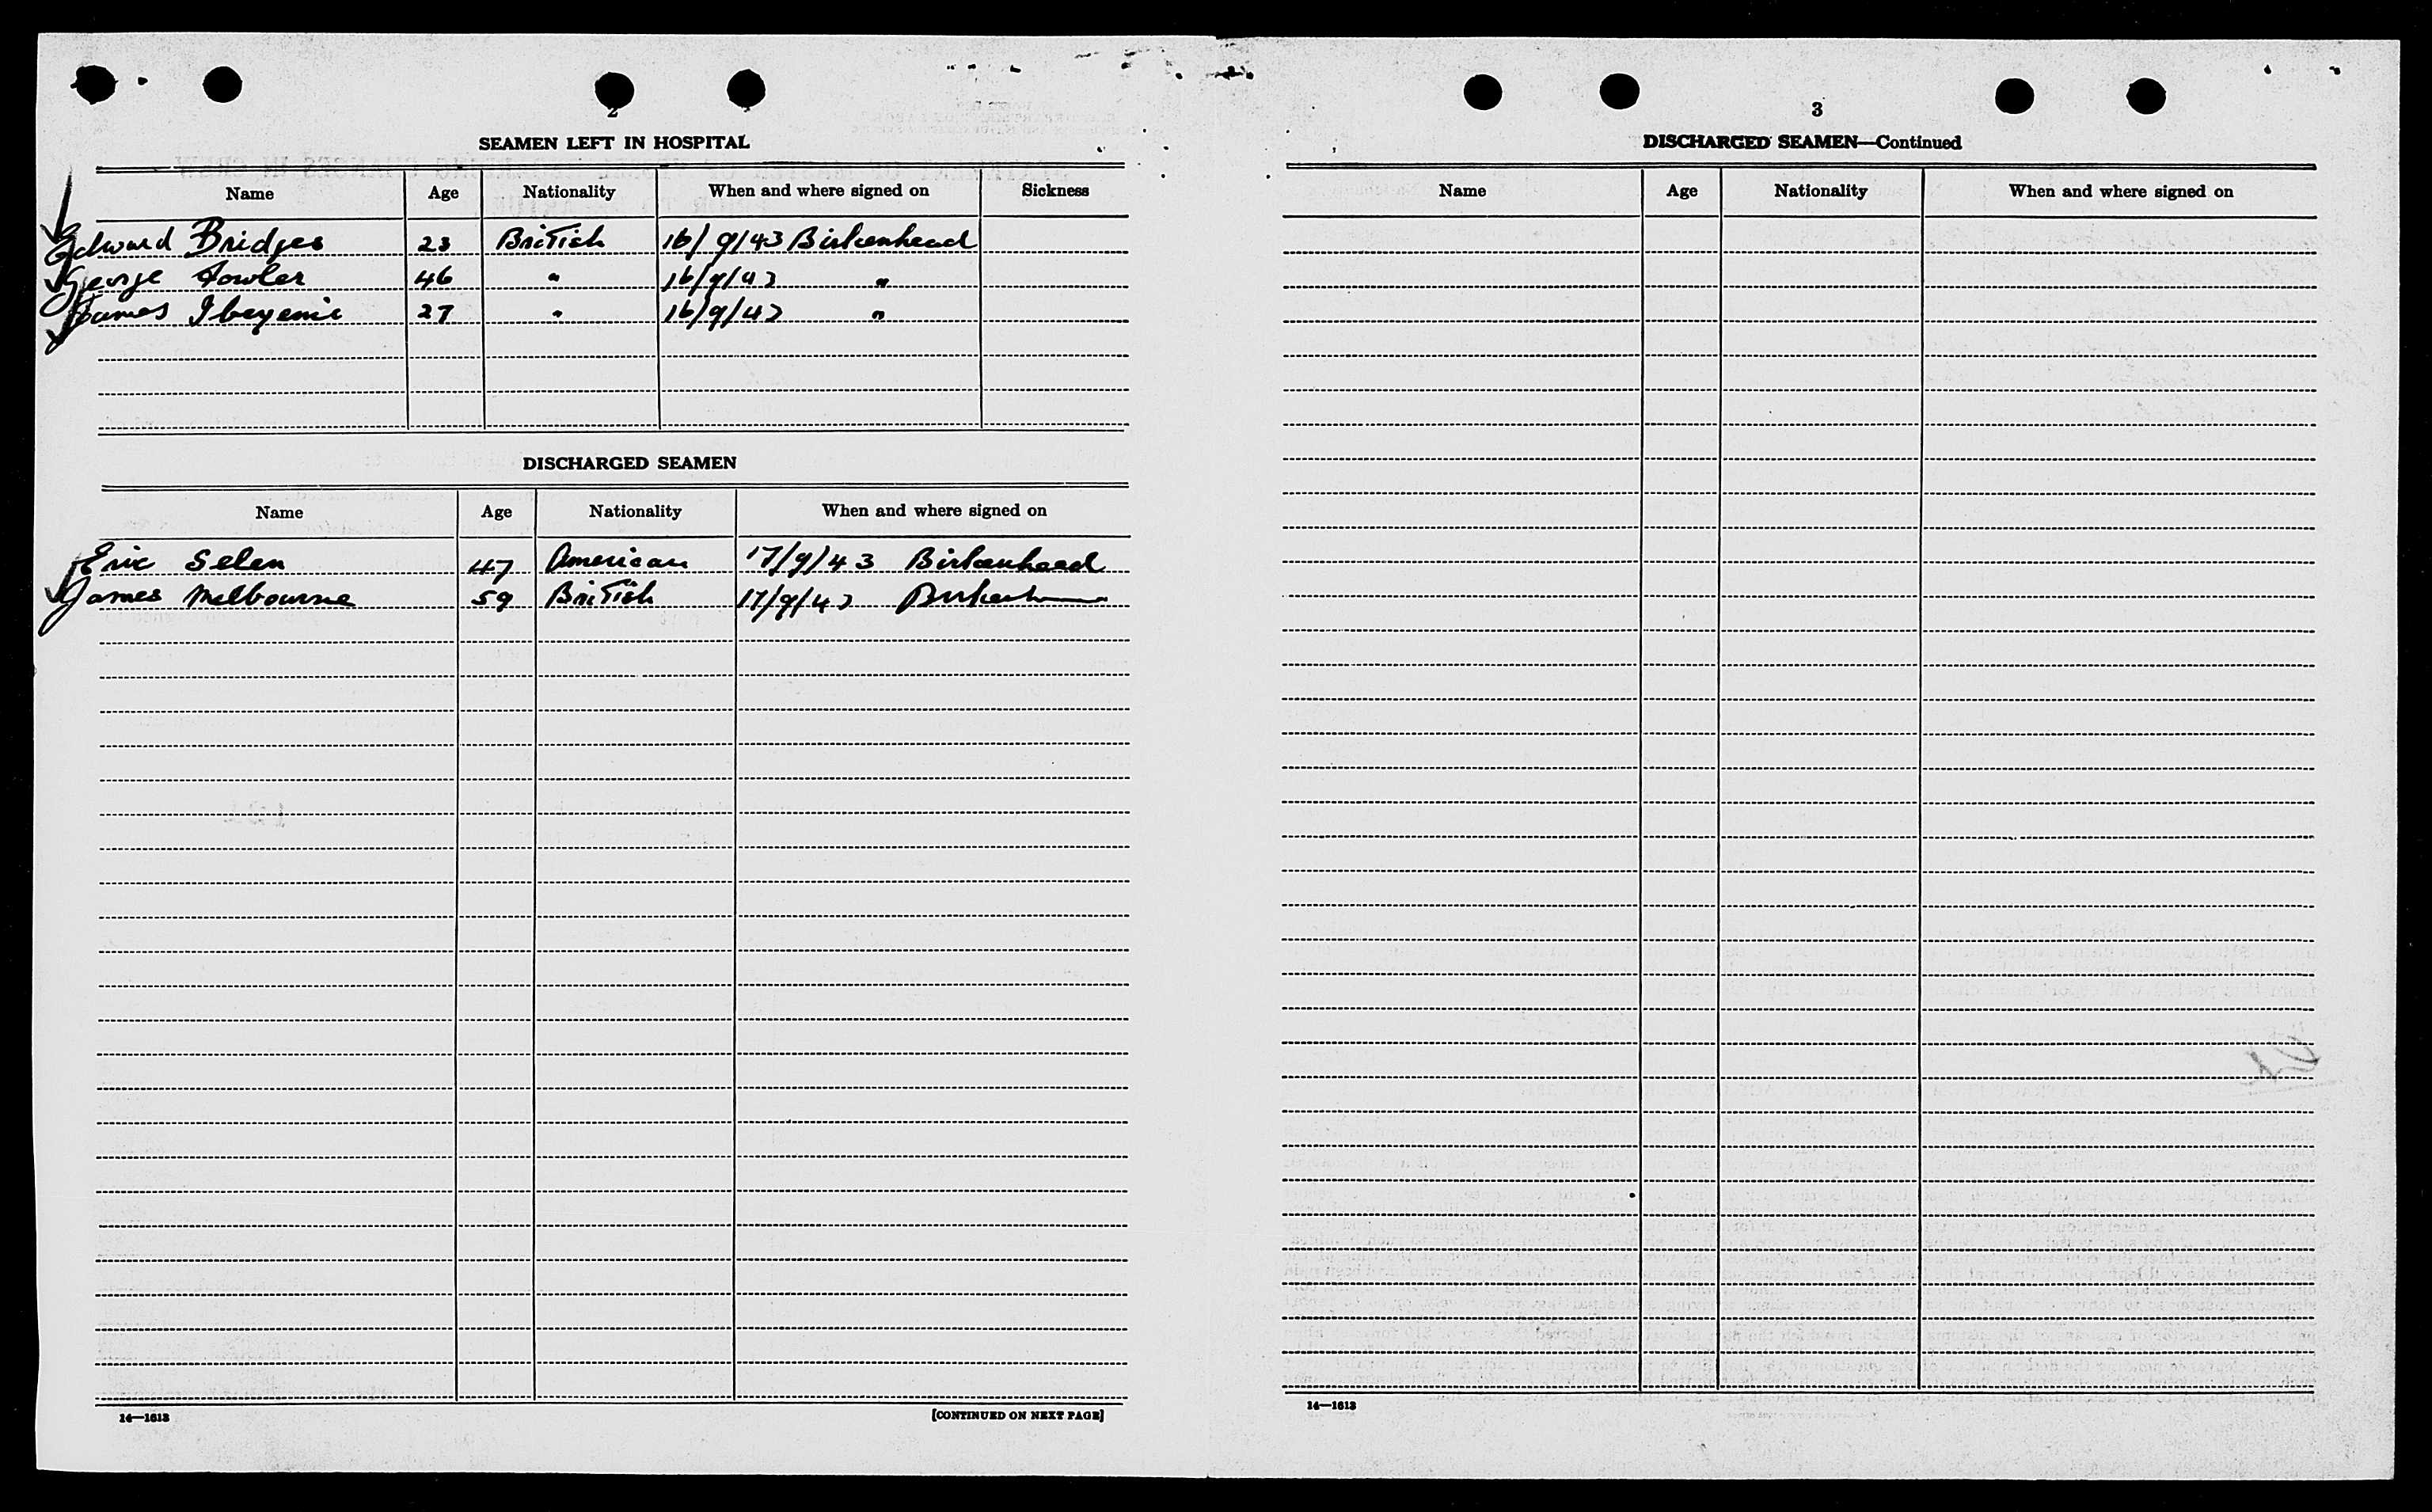 2
SEAMEN LEFT IN HOSPITAL
Name Age Nationality When and where signed on Sickness
Edward Bridges 23 British 16/9/43 Birkenhead
George Fowler 46 " 16/9/43 "
James Ibeyemie 27 " 16/9/43 "
DISCHARGED SEAMEN
Name Age Nationality When and where signed on
Eric Selen 47 American 17/9/43 Birkenhead
James Melbourne 59 British 17/9/43
14—1613 [CONTINUED ON NEXT PAGE]
3
DISCHARGED SEAMEN—Continued
Name Age Nationality When and where signed on
14—1613